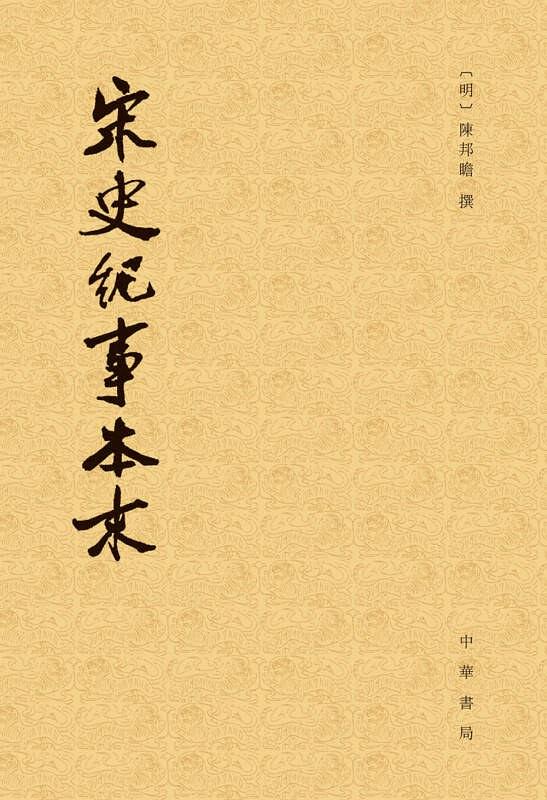 〔明〕陳邦瞻 撰
中華書局
宋史紀事本末